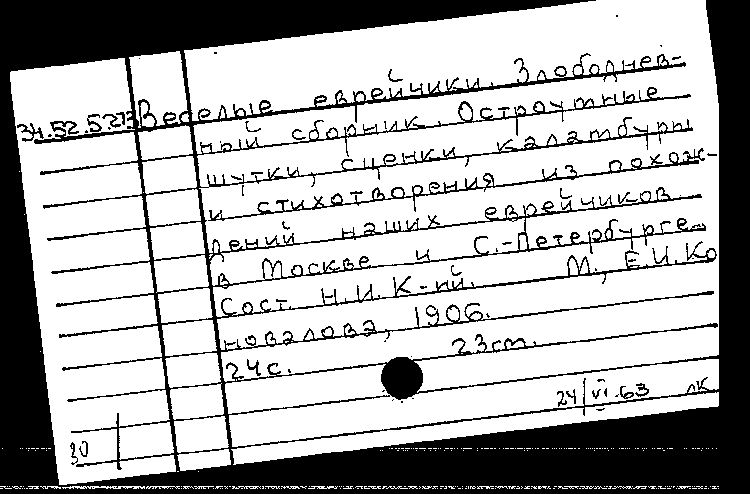 34.52.5.273 Веселые еврейчики. Злободнев-
ный сборник. Остроумные
шутки, сценки, каламбуры
и стихотворения из похож-
дений наших еврейчиков
в Москве и С.-Петербурге.
Сост. Н.И. К-ий. М., Е.И. Ко
новалова, 1906.
24с. 23см.
24/VI.63 лк
30